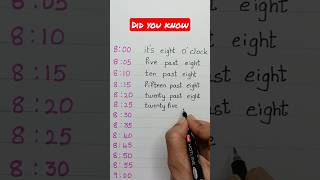 DID YOU KNOW
8:05
8:10
8:15
8:20
8:25
8:30
8:35
8:40
8:45
8:50
8:55
9:00
8:00 it's eight o'clock
8:05 five past eight
8:10 ten past eight
8:15 fifteen past eight
8:20 twenty past eight
8:25 twenty five
8:30
8:35
8:40
8:45
8:50
8:55
9:00